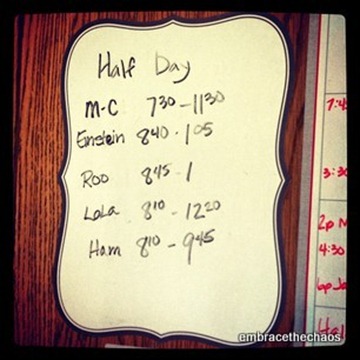 Half Day
M-C 730 - 1130
Einstein 840 - 105
Roo 845 - 1
LoLa 810 - 1220
Ham 810 - 945
7:4
3:3
2p M
4:30
6p Ja
embracethechaos